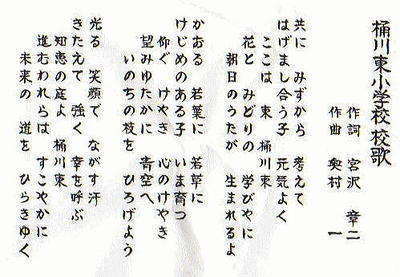 桶川東小学校校歌
作詞 宮沢 章二
作曲 奥村 一
共に みずから 考えて
はげまし合う子 元気よく
ここは 東 桶川東
花と みどりの 学びやに
朝日のうたが 生まれるよ
かおる 若葉に 若草に
けじめのある子 いま育つ
仰ぐ けやき 心のけやき
望みゆたかに 青空へ
いのちの枝を ひろげよう
光る 笑顔で ながす汗
きたえて 強く 幸を呼ぶ
知恵の庭よ 桶川東
進むわれらは すこやかに
未来の 道を ひらきゆく